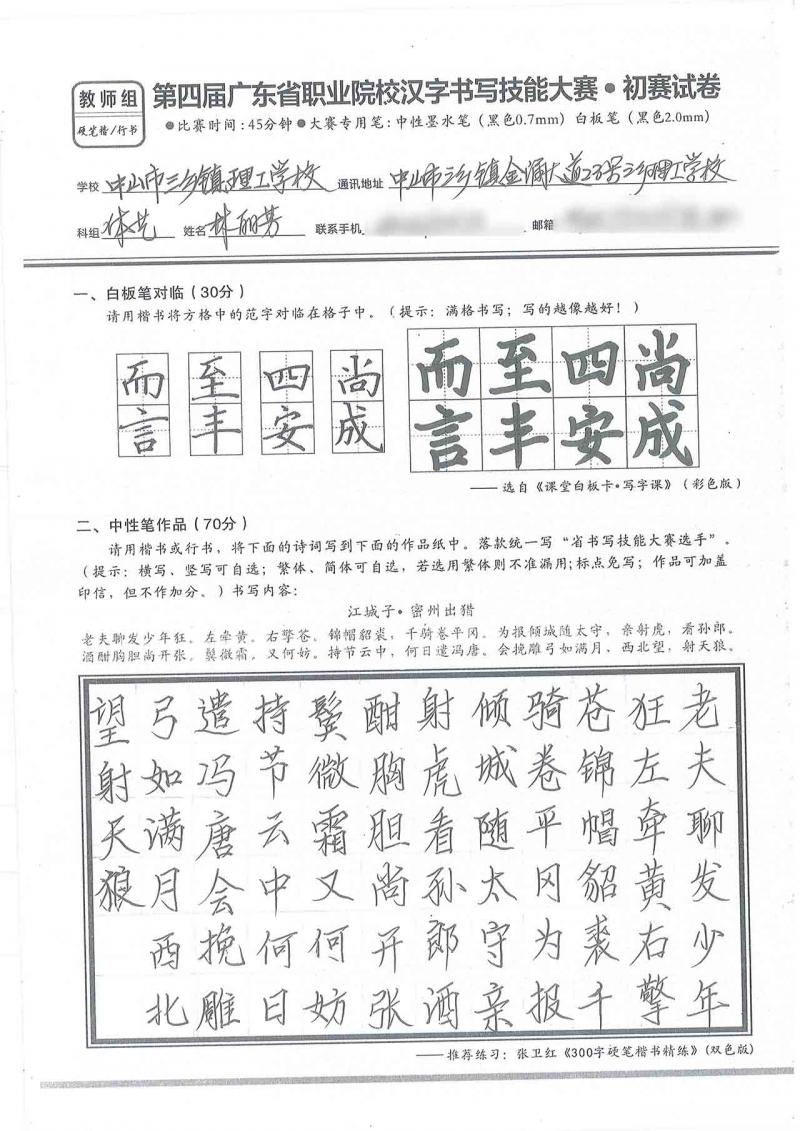 教师组
硬笔楷/行书
第四届广东省职业院校汉字书写技能大赛•初赛试卷
●比赛时间:45分钟●大赛专用笔:中性墨水笔(黑色0.7mm)白板笔(黑色2.0mm)
学校 中山市三乡镇理工学校 通讯地址 中山市三乡镇金涌大道23号三乡理工学校
科组 体艺 姓名 林丽芳 联系手机 邮箱
一、白板笔对临(30分)
请用楷书将方格中的范字对临在格子中。(提示:满格书写;写的越像越好!)
而至四尚 而至四尚
言丰安成 言丰安成
——选自《课堂白板卡•写字课》(彩色版)
二、中性笔作品(70分)
请用楷书或行书,将下面的诗词写到下面的作品纸中。落款统一写“省书写技能大赛选手”。
(提示:横写、竖写可自选;繁体、简体可自选,若选用繁体则不准漏用;标点免写;作品可加盖
印信,但不作加分。)书写内容:
江城子·密州出猎
老夫聊发少年狂。左牵黄。右擎苍。锦帽貂裘,千骑卷平冈。为报倾城随太守,亲射虎,看孙郎。
酒酣胸胆尚开张。鬓微霜。又何妨。持节云中,何日遣冯唐。会挽雕弓如满月、西北望,射天狼。
老夫聊发少年
狂左牵黄右擎
苍锦帽貂裘千
骑卷平冈为报
倾城随太守亲
射虎看孙郎酒
酣胸胆尚开张
鬓微霜又何妨
持节云中何日
遣冯唐会挽雕
弓如满月西北
望射天狼
——推荐练习:张卫红《300字硬笔楷书精练》(双色版)